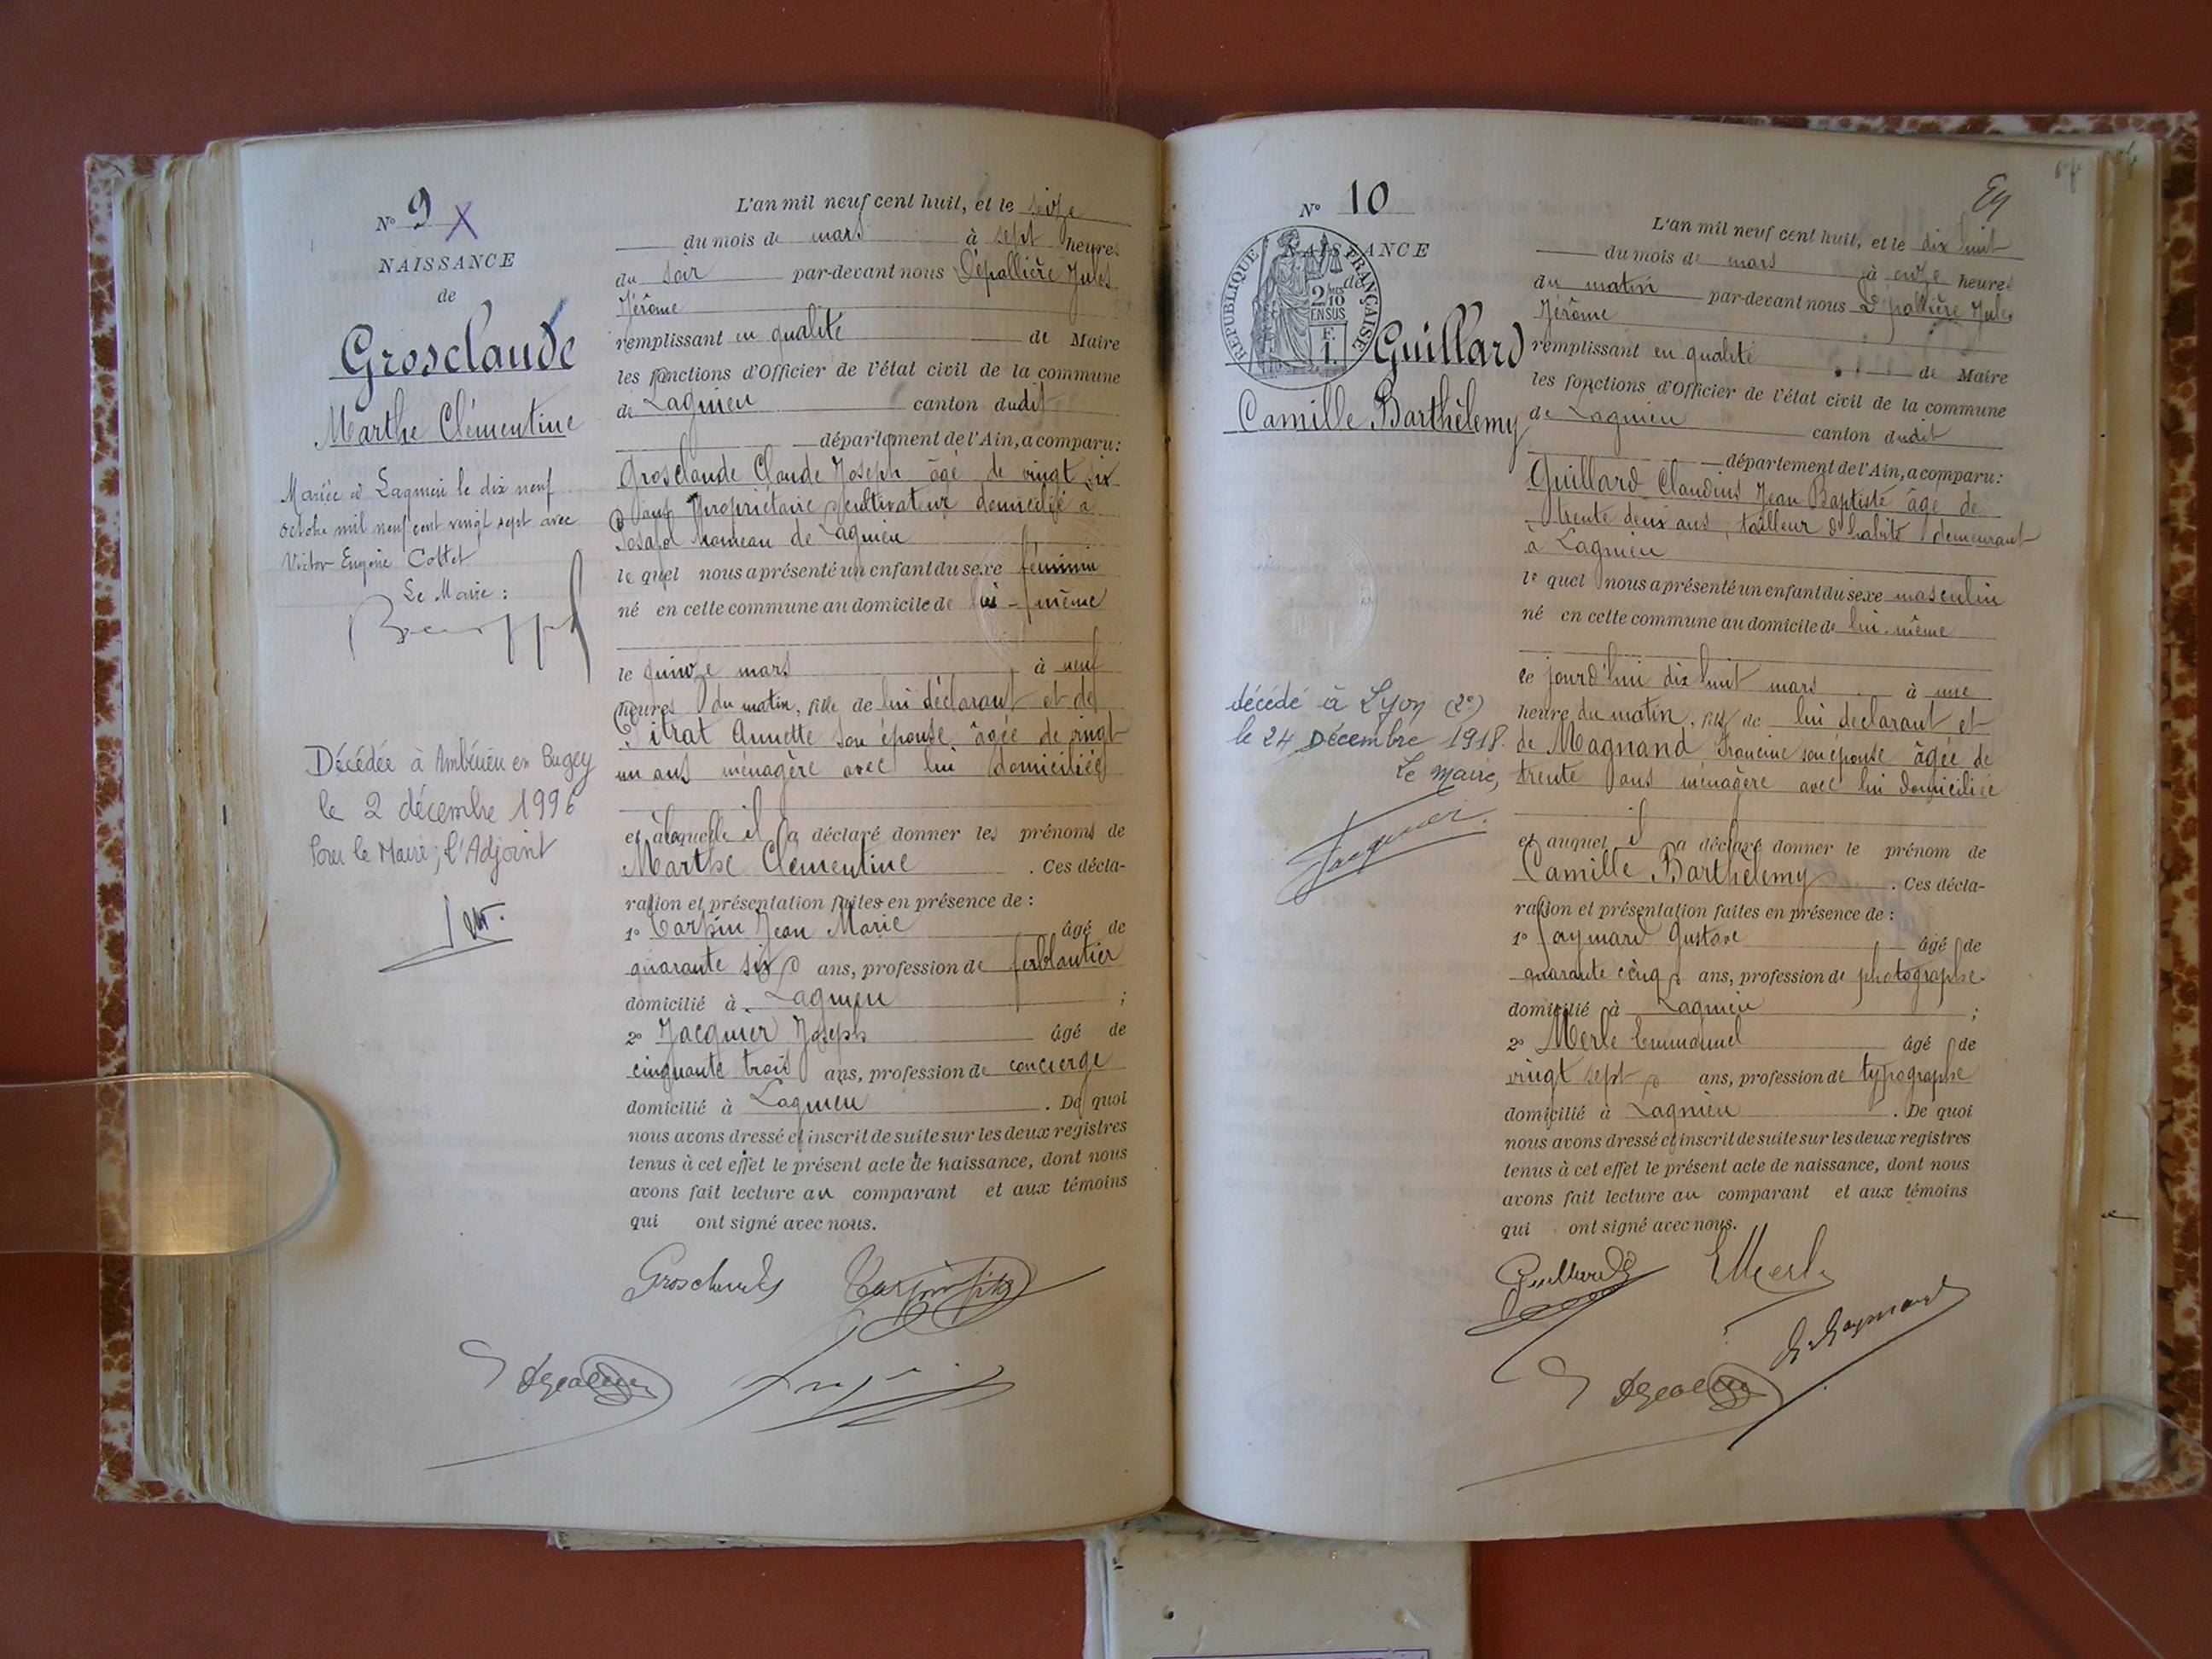 N° 9 X
NAISSANCE
de
Grosclaude
Marthe Clémentine
Mariée à Lagnieu le dix neuf
octobre mil neuf cent vingt sept avec
Victor Eugène Cottet
Le Maire :
Décédée à Ambérieu en Bugey
le 2 décembre 1996
Pour le Maire, l'Adjoint
L'an mil neuf cent huit, et le seize
du mois de mars à sept heures
du soir par-devant nous Dépallière Jules
Jérôme
remplissant en qualité de Maire
les fonctions d'Officier de l'état civil de la commune
de Lagnieu canton dudit
département de l'Ain, a comparu :
Grosclaude Claude Joseph âgé de vingt six
ans Propriétaire cultivateur domicilié à
Posafol hameau de Lagnieu
le quel nous a présenté un enfant du sexe féminin
né en cette commune au domicile de lui-même
le quinze mars à neuf
heures du matin, fille de lui déclarant et de
Titrat Annette son épouse âgée de vingt
un ans ménagère avec lui domiciliée
et à laquelle il a déclaré donner les prénoms de
Marthe Clémentine . Ces décla-
ration et présentation faites en présence de :
1° Carpin Jean Marie âgé de
quarante six ans, profession de ferblantier
domicilié à Lagnieu ;
2° Jacquier Joseph âgé de
cinquante trois ans, profession de concierge
domicilié à Lagnieu . De quoi
nous avons dressé et inscrit de suite sur les deux registres
tenus à cet effet le présent acte de naissance, dont nous
avons fait lecture au comparant et aux témoins
qui ont signé avec nous.
Grosclaude Carpin fils
N° 10
NAISSANCE
de
RÉPUBLIQUE FRANÇAISE
2/10 EN SUS
1.
Guillard
Camille Barthélemy
décédé à Lyon (2e)
le 24 Décembre 1918.
Le Maire,
Jacquier
L'an mil neuf cent huit, et le dix huit
du mois de mars à onze heures
du matin par-devant nous Dépallière Jules
Jérôme
remplissant en qualité de Maire
les fonctions d'Officier de l'état civil de la commune
de Lagnieu canton dudit
département de l'Ain, a comparu :
Guillard Claudius Jean Baptiste âgé de
trente deux ans, tailleur d'habits demeurant
à Lagnieu
le quel nous a présenté un enfant du sexe masculin
né en cette commune au domicile de lui-même
ce jourd'hui dix huit mars à une
heure du matin, fils de lui déclarant et
de Magnand Francine son épouse âgée de
trente ans ménagère avec lui domiciliée
et auquel il a déclaré donner le prénom de
Camille Barthélemy . Ces décla-
ration et présentation faites en présence de :
1° Gaymard Gustave âgé de
quarante cinq ans, profession de photographe
domicilié à Lagnieu ;
2° Merle Emmanuel âgé de
vingt sept ans, profession de typographe
domicilié à Lagnieu . De quoi
nous avons dressé et inscrit de suite sur les deux registres
tenus à cet effet le présent acte de naissance, dont nous
avons fait lecture au comparant et aux témoins
qui ont signé avec nous.
Guillard EMerle
G. Gaymard